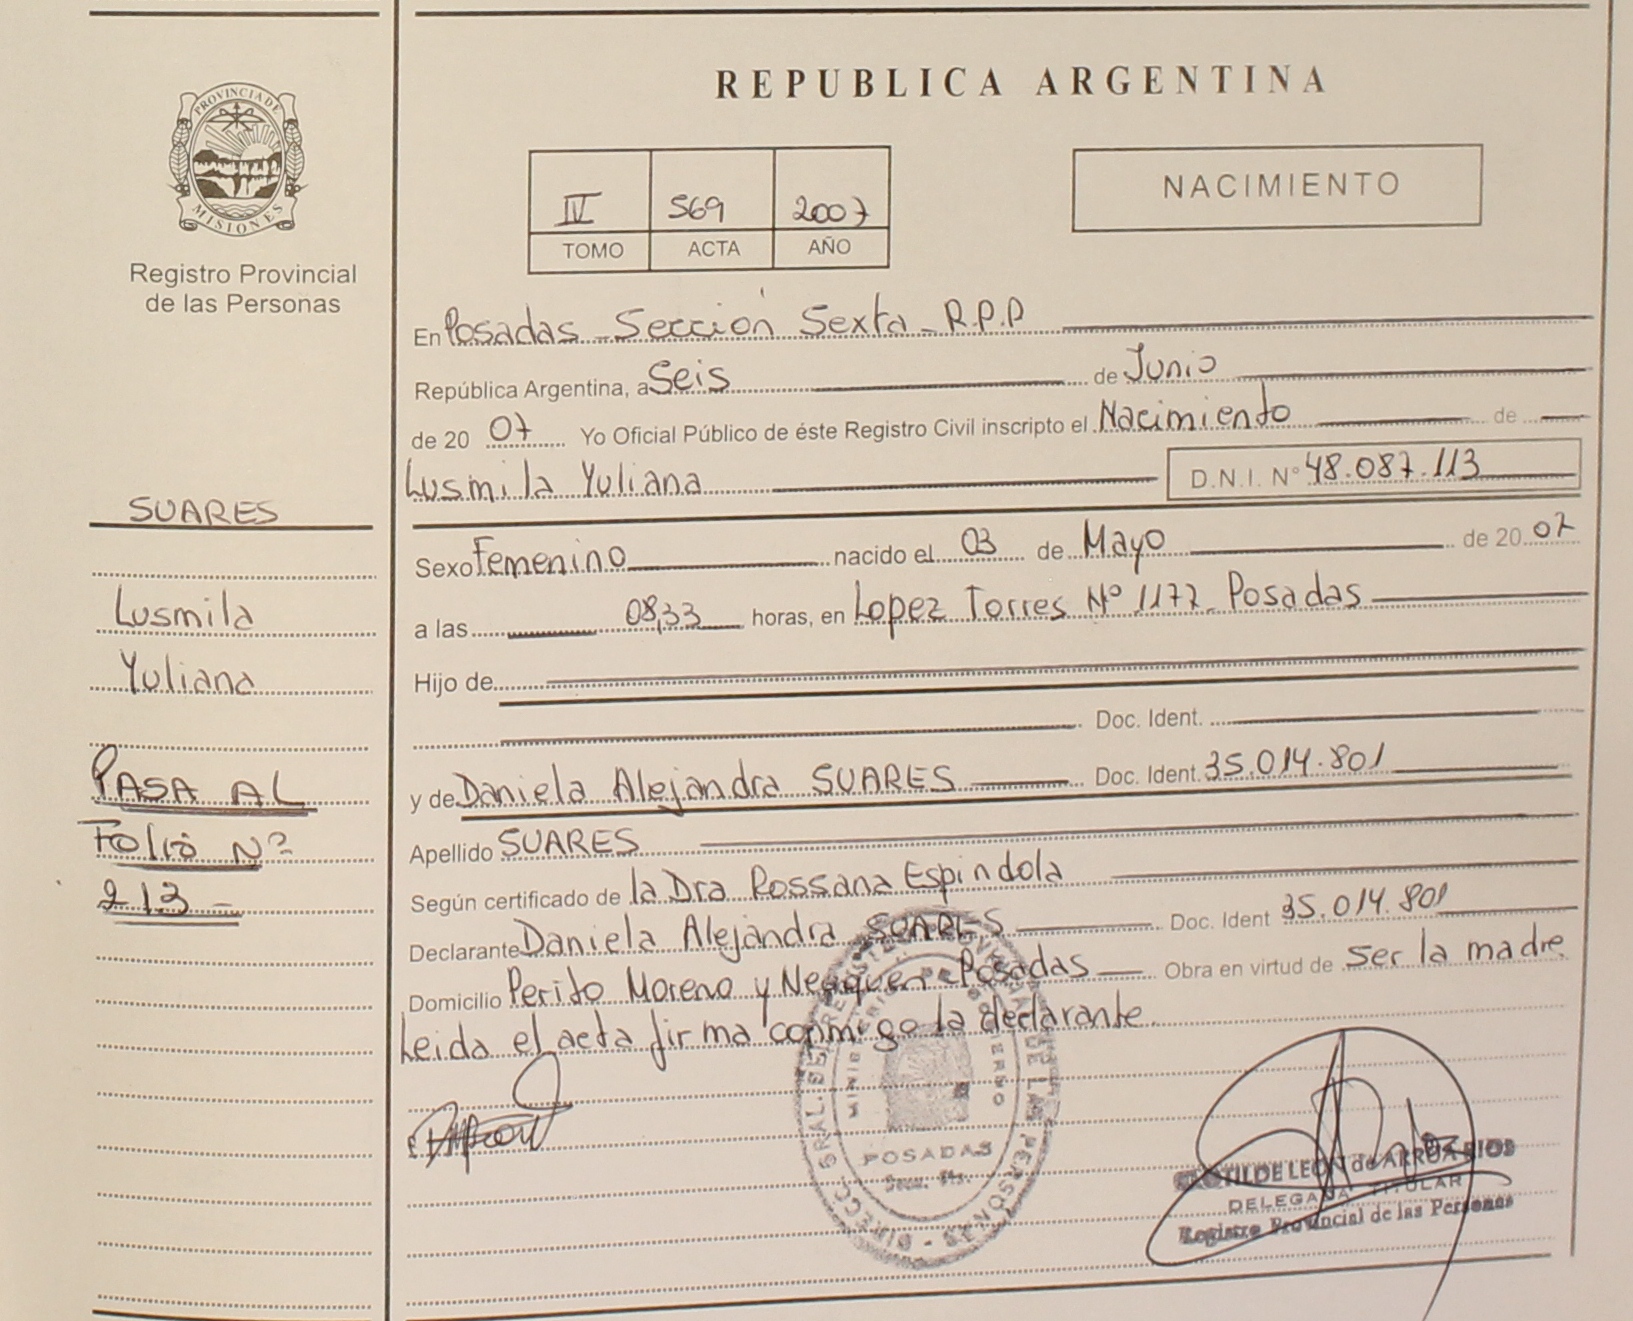 PROVINCIA DE
MISIONES
Registro Provincial
de las Personas
SUARES
Lusmila
Yuliana
PASA AL
Folio Nº
213 -
REPUBLICA ARGENTINA
IV 569 2007
TOMO ACTA AÑO
NACIMIENTO
En Posadas - Sección Sexta - R.P.P
República Argentina, a Seis de Junio
de 20 07 Yo Oficial Público de éste Registro Civil inscripto el Nacimiento de
Lusmila Yuliana D.N.I. Nº 48.087.113
Sexo Femenino nacido el 03 de Mayo de 20 07
a las 08,33 horas, en Lopez Torres Nº 1177 - Posadas
Hijo de
Doc. Ident.
y de Daniela Alejandra SUARES Doc. Ident. 35.014.801
Apellido SUARES
Según certificado de la Dra Rossana Espindola
Declarante Daniela Alejandra SUARES Doc. Ident 35.014.801
Domicilio Perito Moreno y Neuquen Posadas Obra en virtud de ser la madre
Leida el acta firma conmigo la declarante.
MINISTERIO DE GOBIERNO
POSADAS
DE LEON de ARRUA RIOS
DELEGADA TITULAR
Registro Provincial de las Personas